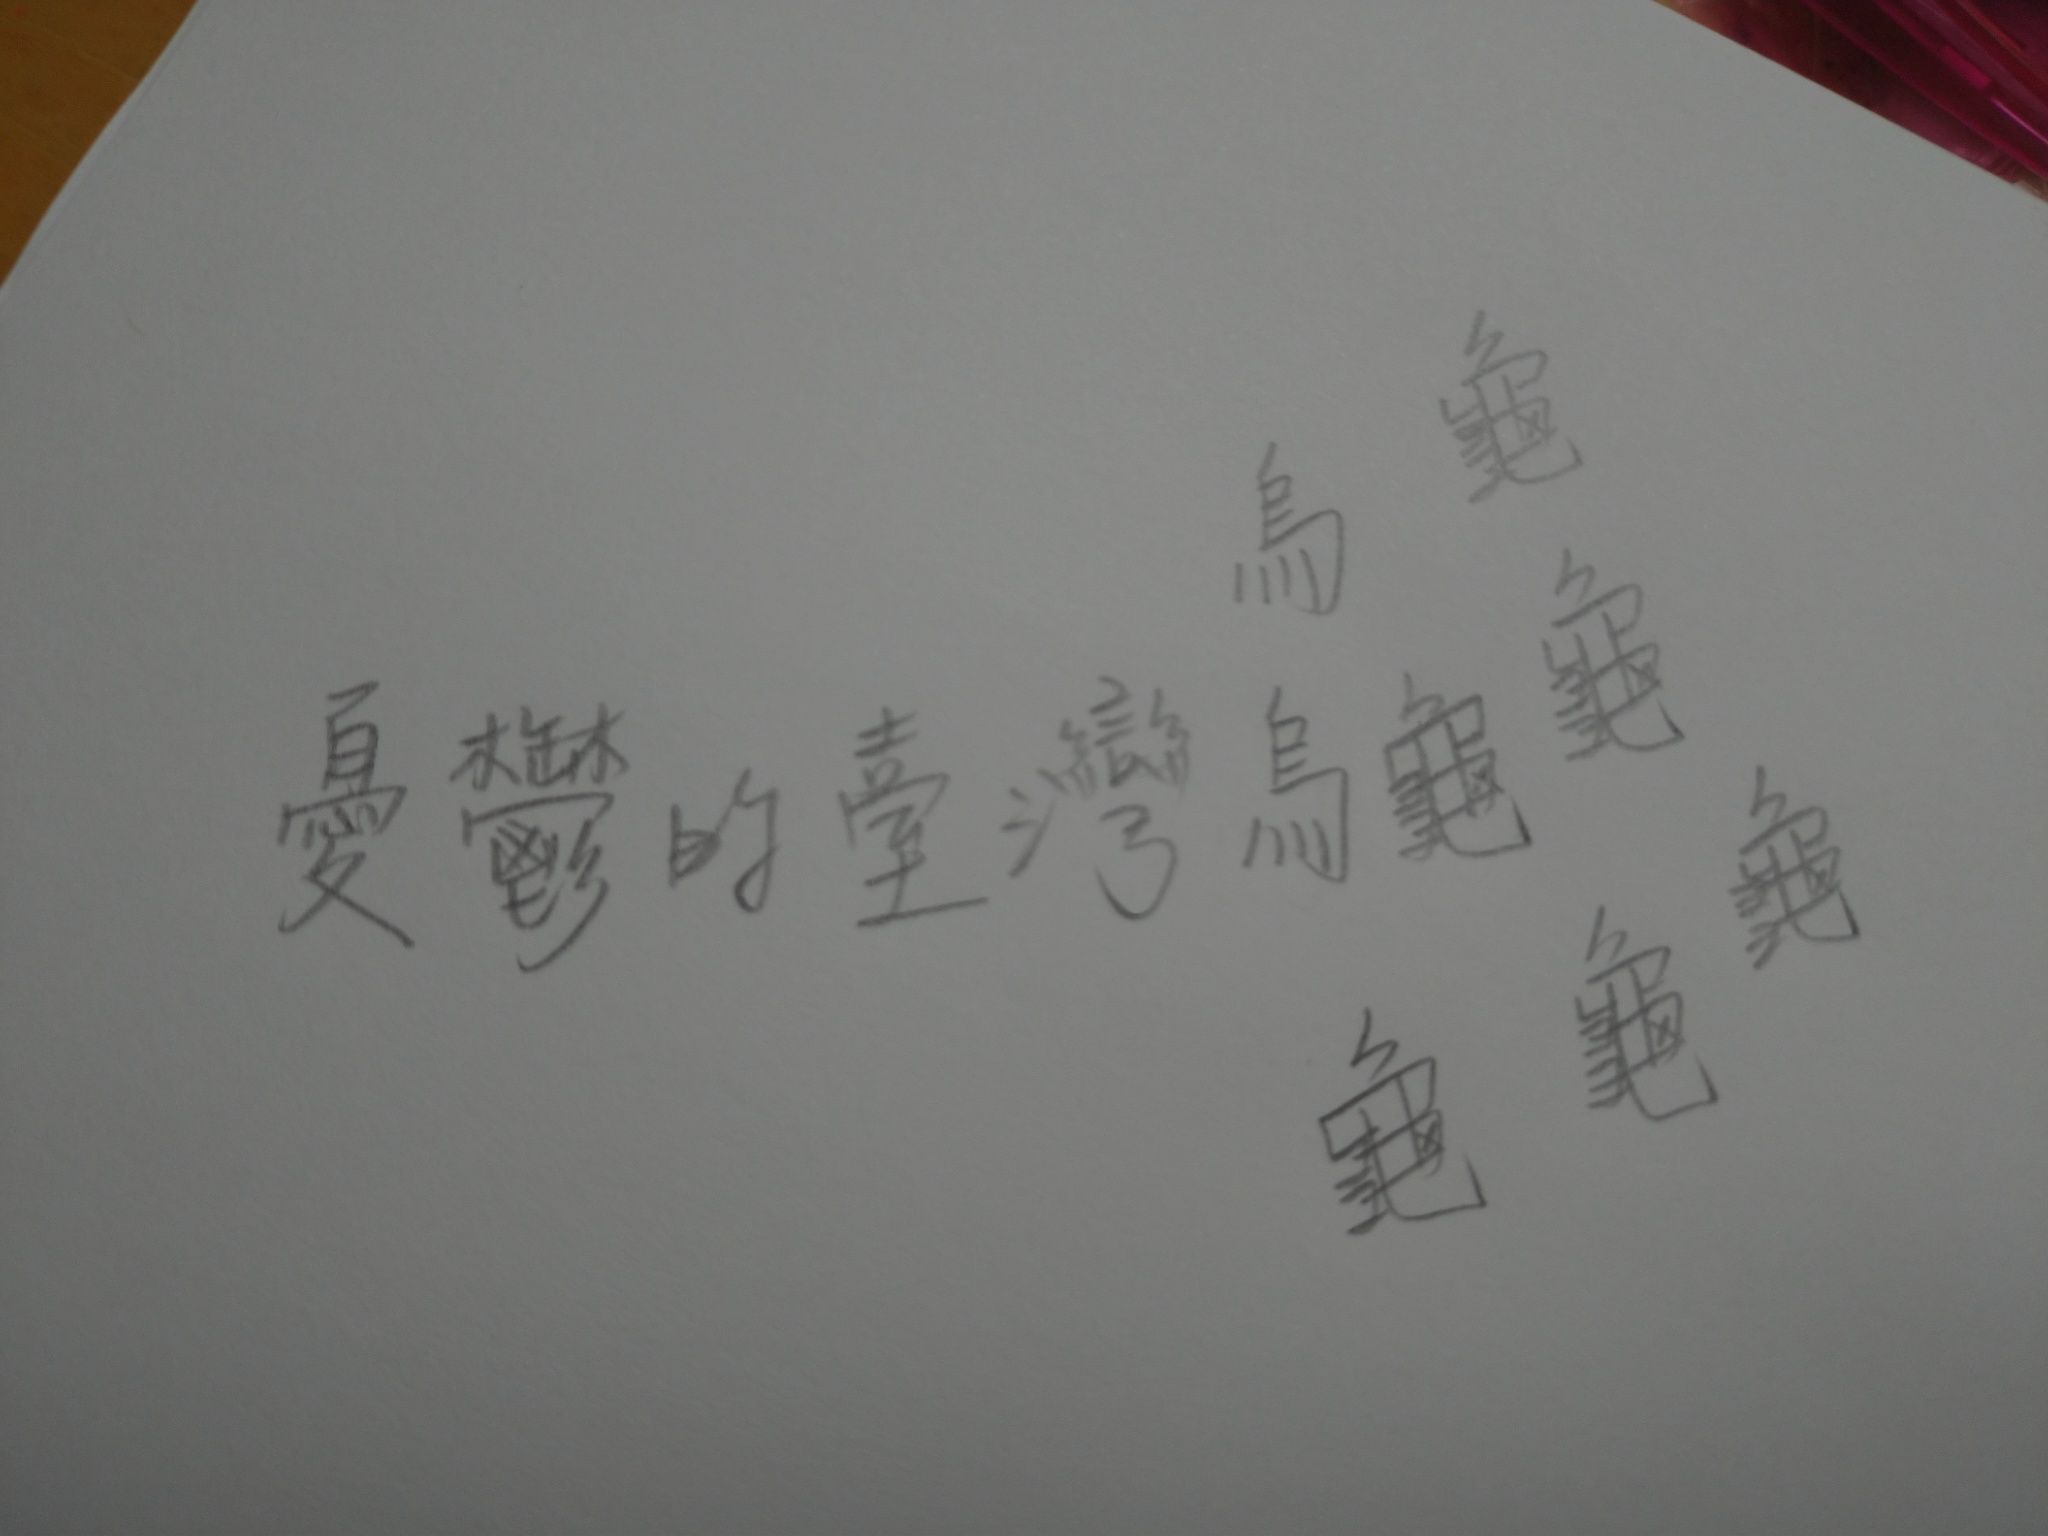 龜
烏
龜
憂鬱的臺灣烏龜
龜
龜
龜